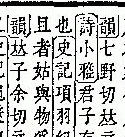 韻七野切𠀤
詩小雅君子有
也史記項羽紀
且者姑與物
韻子余切𠀤